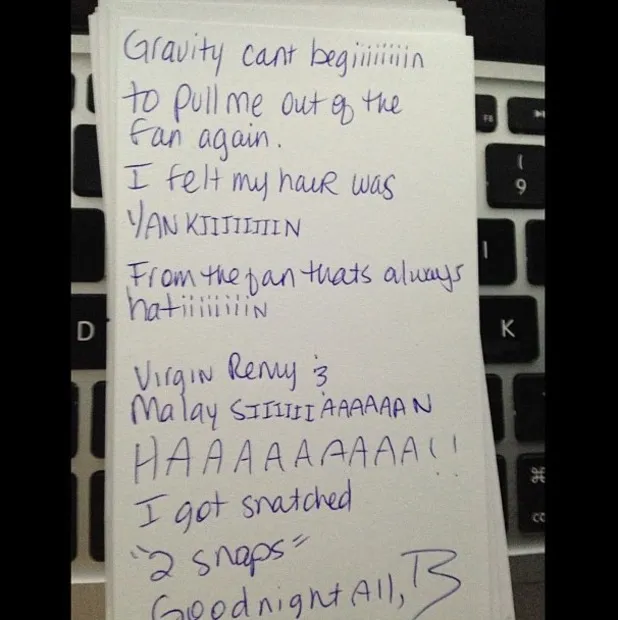 Gravity cant begiiiiiiiin
to pull me out of the
fan again.
I felt my hair was
YANKIIIIIIIIN
From the fan thats always
hatiiiiiiiiin
Virgin Remy &
Malay SIIIIIIIAAAAAAN
HAAAAAAAAAA!!
I got snatched
"2 snaps"
Goodnight All, B
F8
(
9
I
D
K
⌘